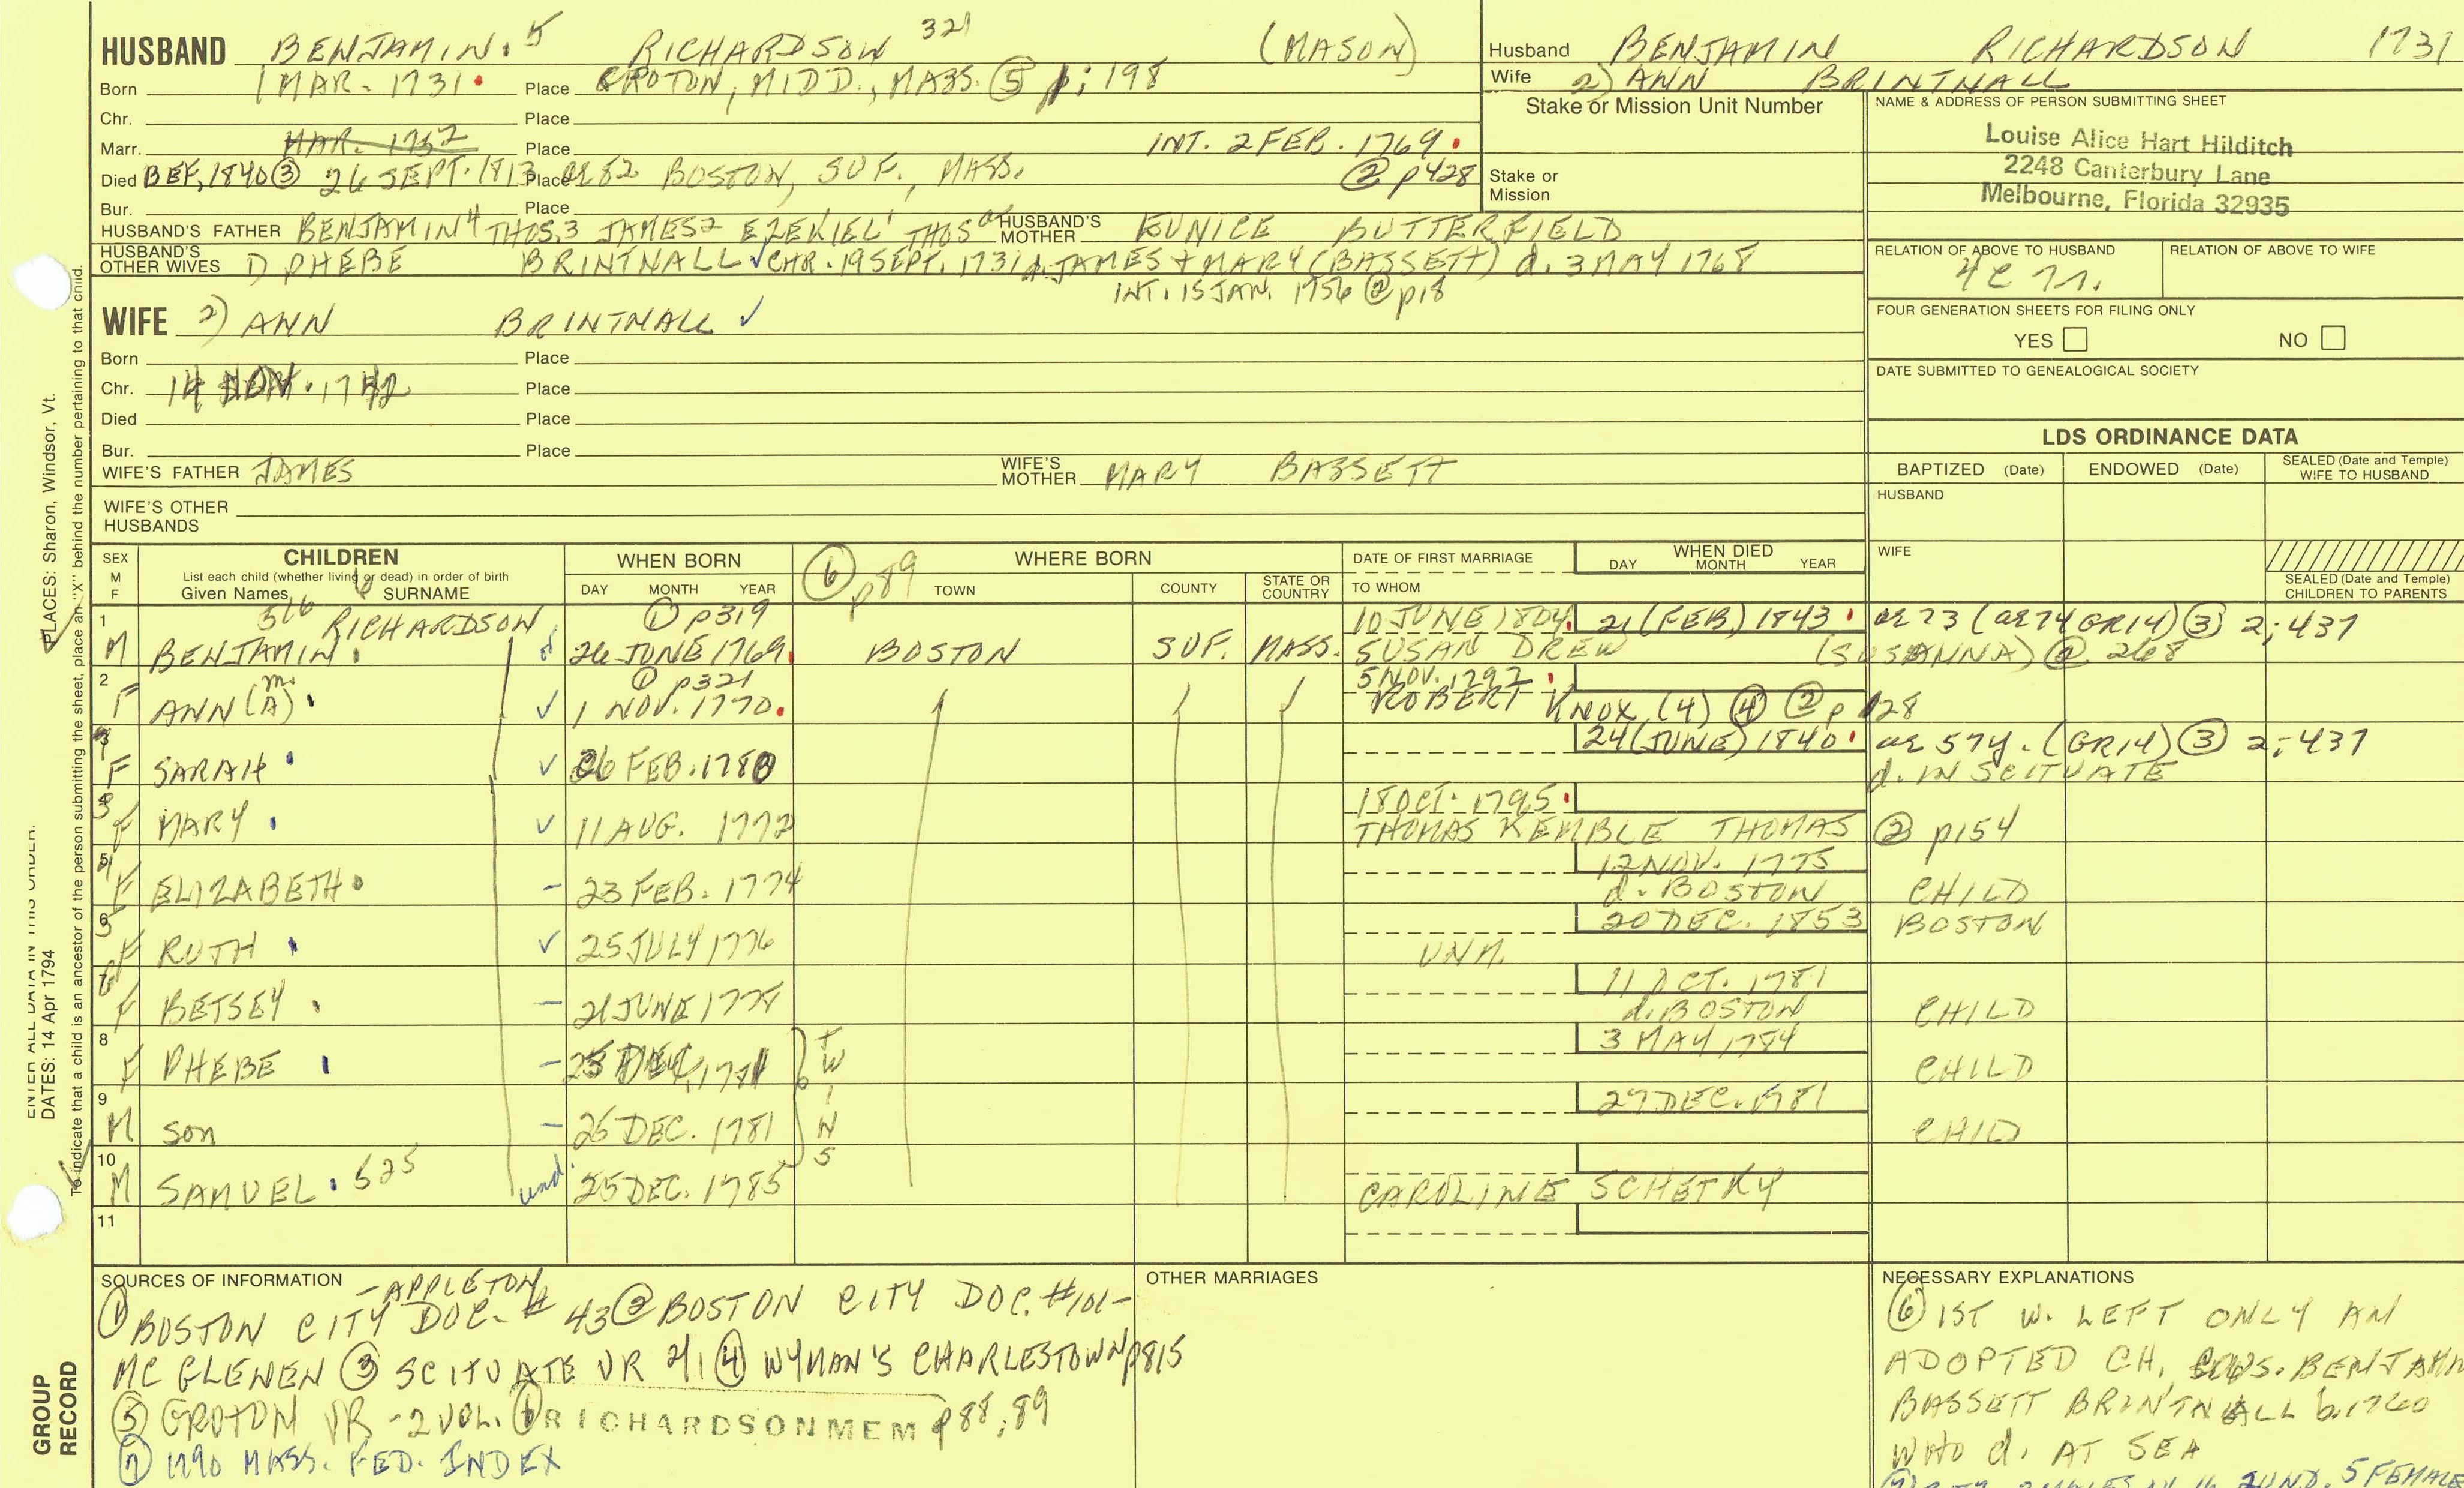 HUSBAND BENJAMIN. 5 RICHARDSON 321 (MASON)
Born 1 MAR. 1731 Place GROTON, MIDD., MASS. ⑤ p; 198
Chr. Place
Marr. MAR. 1732 Place INT. 2 FEB. 1769
Died BEF, 1840 ③ 26 SEPT. 1813 Place ae 82 BOSTON, SUF., MASS. ② p428
Bur. Place
HUSBAND'S FATHER BENJAMIN4 THOS.3 JAMES2 EZEKIEL1 THOS HUSBAND'S MOTHER EUNICE BUTTERFIELD
HUSBAND'S OTHER WIVES 1) PHEBE BRINTNALL ✓ CHR. 19 SEPT. 1731 d. JAMES + MARY (BASSETT) d. 3 MAY 1768
INT. 15 JAN. 1756 ② p18
WIFE 2) ANN BRINTNALL ✓
Born Place
Chr. 14 1742 Place
Died Place
Bur. Place
WIFE'S FATHER JAMES WIFE'S MOTHER MARY BASSETT
WIFE'S OTHER HUSBANDS
Husband BENJAMIN RICHARDSON 1731
Wife 2) ANN BRINTNALL
Stake or Mission Unit Number
Stake or Mission
NAME & ADDRESS OF PERSON SUBMITTING SHEET
Louise Alice Hart Hilditch
2248 Canterbury Lane
Melbourne, Florida 32935
RELATION OF ABOVE TO HUSBAND RELATION OF ABOVE TO WIFE
4C
FOUR GENERATION SHEETS FOR FILING ONLY
YES NO
DATE SUBMITTED TO GENEALOGICAL SOCIETY
LDS ORDINANCE DATA
BAPTIZED (Date) ENDOWED (Date) SEALED (Date and Temple) WIFE TO HUSBAND
HUSBAND
WIFE
SEALED (Date and Temple) CHILDREN TO PARENTS
SEX M F
CHILDREN
List each child (whether living or dead) in order of birth
Given Names SURNAME 6
WHEN BORN
DAY MONTH YEAR
⑥ p89 WHERE BORN
TOWN COUNTY STATE OR COUNTRY
DATE OF FIRST MARRIAGE
TO WHOM
WHEN DIED
DAY MONTH YEAR
1 516 RICHARDSON ① p319 10 JUNE 1804 21 (FEB) 1843 ae 73 (ae 74 GR14) ③ 2;437
M BENJAMIN. 26 JUNE 1769 BOSTON SUF. MASS. SUSAN DREW (SUSANNA) ② 268
2 m. ① p321 5 NOV. 1797
F ANN (A) ✓ 1 NOV. 1770 ROBERT KNOX (4) ④ ② p 128
3 24 (JUNE) 1840 ae 57y. (GR14) ③ 2;437
F SARAH ✓ 26 FEB. 1780 d. IN SCITUATE
3 18 OCT. 1795
F MARY ✓ 11 AUG. 1772 THOMAS KEMBLE THOMAS ② p154
5 12 NOV. 1775
F ELIZABETH - 23 FEB. 1774 d. BOSTON CHILD
6 20 DEC. 1853 BOSTON
F RUTH ✓ 25 JULY 1776 UNM.
7 11 OCT. 1781
F BETSEY - 21 JUNE 1778 d. BOSTON CHILD
8 3 MAY 1784
F PHEBE - 25 DEC. 1781 TWINS CHILD
9 27 DEC. 1781
M son - 25 DEC. 1781 CHILD
10
M SAMUEL. 525 und. 25 DEC. 1785 CAROLINE SCHETKY
11
SOURCES OF INFORMATION
① BOSTON CITY DOC. # 43 -APPLETON ② BOSTON CITY DOC. #101-
MC GLENEN ③ SCITUATE VR ④ WYMAN'S CHARLESTOWN p815
⑤ GROTON VR - 2 VOL. ⑥ RICHARDSON MEM p88, 89
⑦ 1790 MASS. FED. INDEX
OTHER MARRIAGES
NECESSARY EXPLANATIONS
⑥ 1ST W. LEFT ONLY AN
ADOPTED CH, BENJAMIN
BASSETT BRINTNALL b. 1760
WHO d. AT SEA
5 FEMALE
PLACES: Sharon, Windsor, Vt.
To indicate that a child is an ancestor of the person submitting the sheet, place an "X" behind the number pertaining to that child.
ENTER ALL DATA IN THIS ORDER:
DATES: 14 Apr 1794
GROUP
RECORD